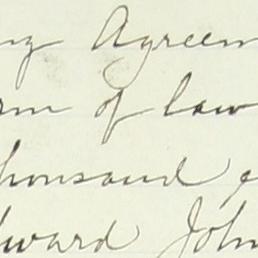 ng Agreem
rm of law
housand e
dward John